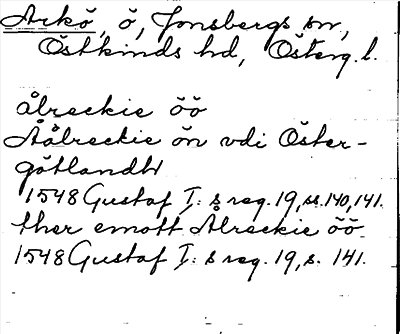 Arkö, ö, Jonsbergs sn,
Östkinds hd, Österg. l.
ålreckie öö
Aålreckie ön vdi Öster-
götlandh
1548 Gustaf I:s reg. 19, ss. 140, 141.
ther emott Ålreckie öö
1548 Gustaf I:s reg. 19, s. 141.